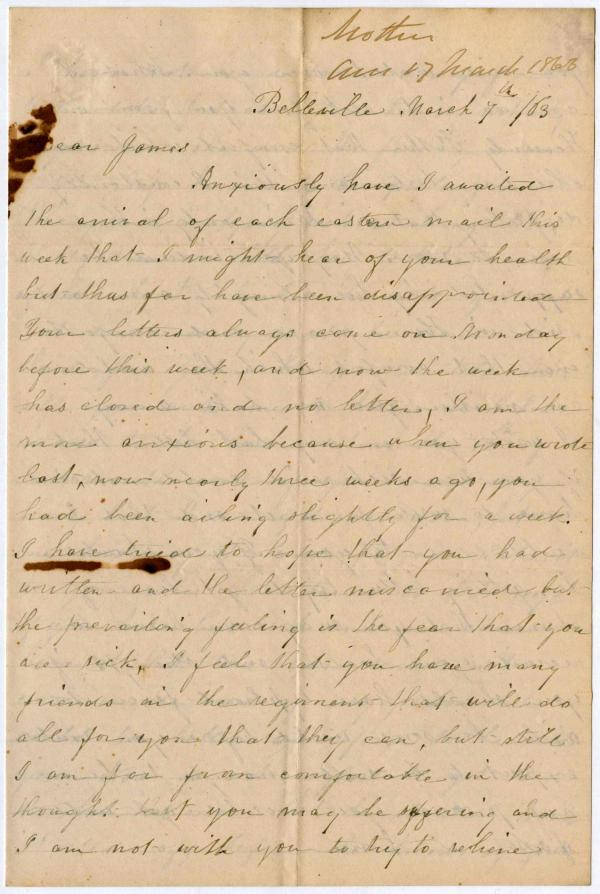 Mother
Ans 17 March 1863
Belleville March 7th /63
ear James
Anxiously have I awaited
the arrival of each eastern mail this
week that I might hear of your health
but thus far have been disappointed
Your letters always came on Monday
before this week, and now the week
has closed and no letter, I am the
more anxious because when you wrote
last, now nearly three weeks ago, you
had been ailing slightly for a week.
I have tried to hope that you had
written and the letter miscarried but
the prevailing feeling is the fear that you
are sick, I feel that you have many
friends in the regiment that will do
all for you that they can, but still
I am far from comfortable in the
thought that you may be suffering and
I am not with you to try to relieve